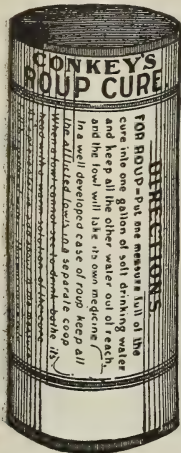 CONKEY'S
ROUP CURE
DIRECTIONS
FOR ROUP-Put one measure full of the
cure into one gallon of soft drinking water
and keep all the other water out of reach,
and the fowl will take its own medicine
In a well developed case of roup keep all
the afflicted fowls in a separate coop
When a fowl cannot see to drink bathe its